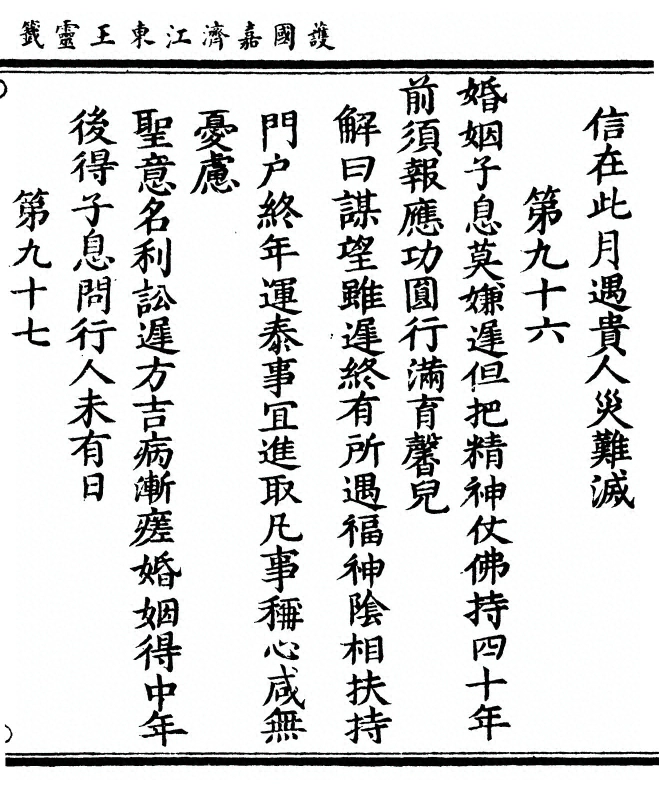 護國嘉濟江東王靈籤
信在此月遇貴人災難滅
第九十六
婚姻子息莫嫌遲但把精神仗佛持四十年
前須報應功圓行滿育馨兒
解曰謀望雖遲終有所遇福神陰相扶持
門户終年運泰事宜進取凡事稱心咸無
憂慮
聖意名利訟遲方吉病漸瘥婚姻得中年
後得子息問行人未有日
第九十七